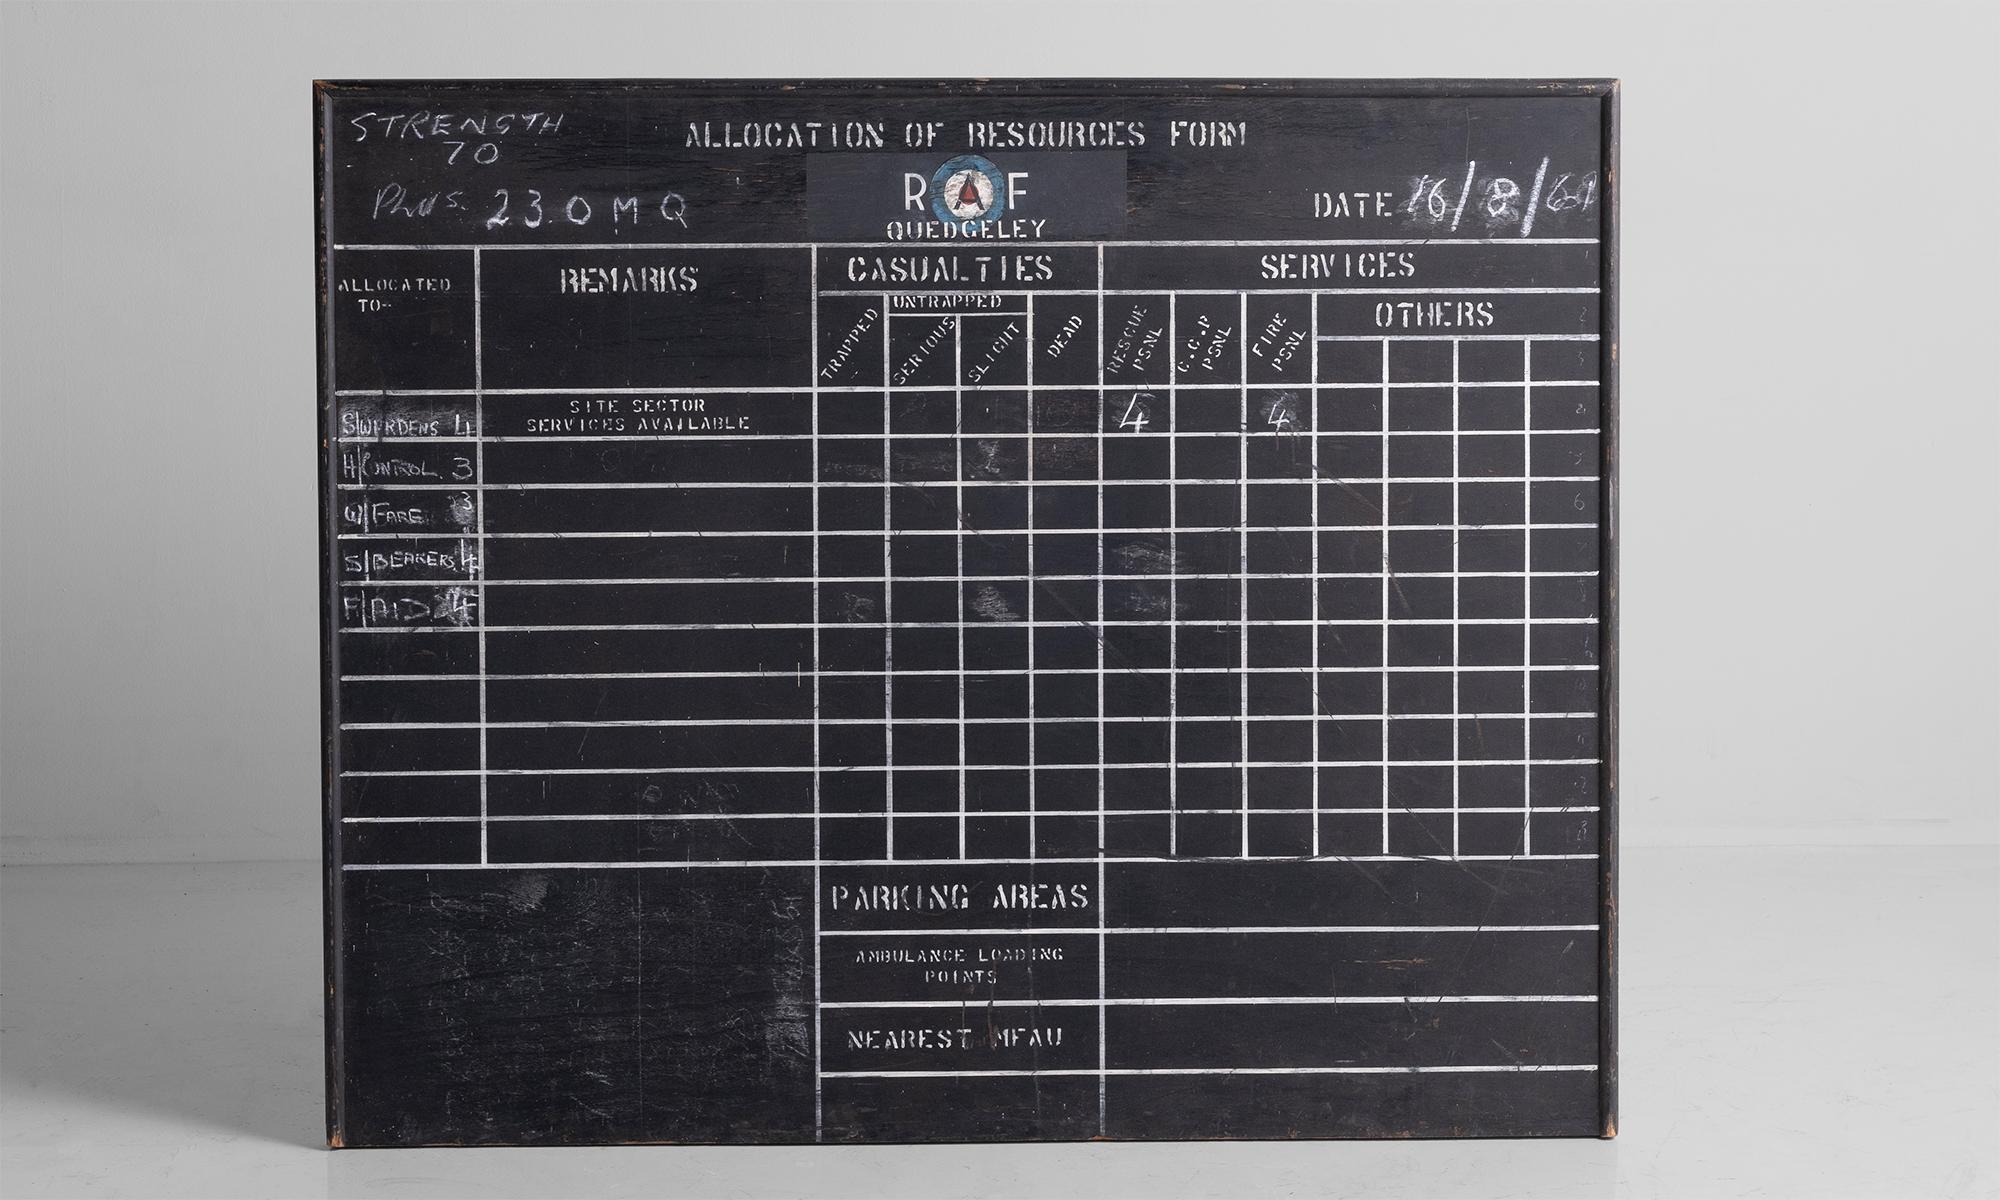 STRENGTH
70
Plus. 23.0 M Q
ALLOCATION OF RESOURCES FORM
RAF
QUEDGELEY
DATE 16/8/
ALLOCATED
TO--
REMARKS
CASUALTIES
SERVICES
UNTRAPPED
OTHERS
TRAPPED
SERIOUS
SLIGHT
DEAD
RESCUE
PSNL
C.C.P
PSNL
FIRE
PSNL
S/WARDENS 4
SITE SECTOR
SERVICES AVAILABLE
4
4
H/CONTROL. 3
W/FARE 3
S/BEARERS 4
F/AID 4
PARKING AREAS
AMBULANCE LOADING
POINTS
NEAREST MFAU